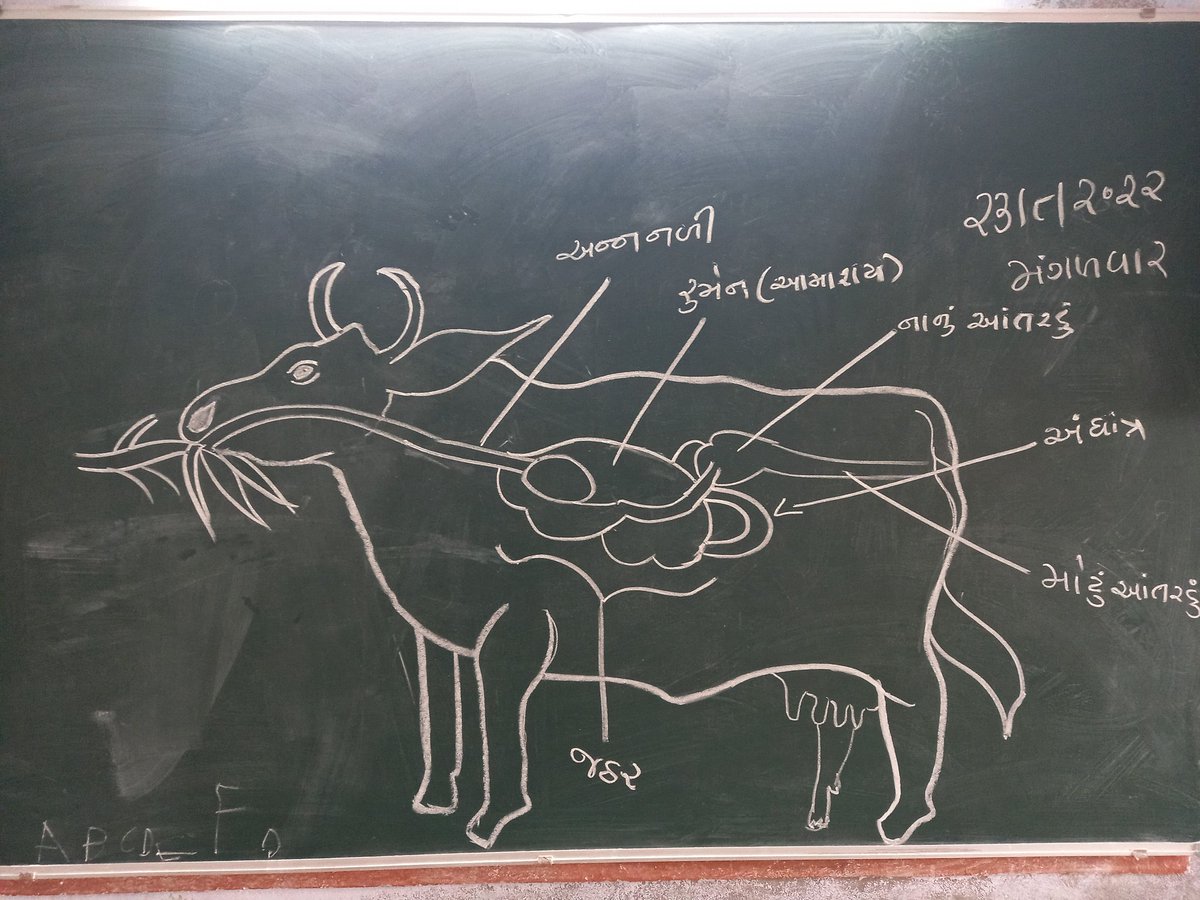 ૨૩/૮/૨૦૨૨
મંગળવાર
અન્નનળી
રુમેન (આમાશય)
નાનું આંતરડું
અંધાંત્ર
મોટું આંતરડું
જઠર